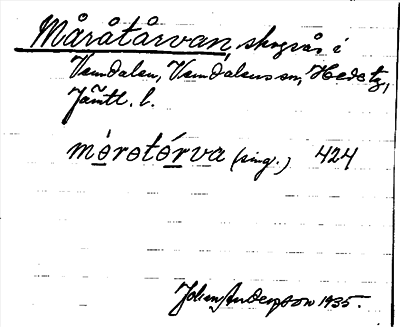 Måråtårvan, skogsås i
Vemdalen, Vemdalens sn, Hede tg,
Jämtl. l.
mǝrǝtǝrva (sing.) 424
Johan Anderzson 1935.